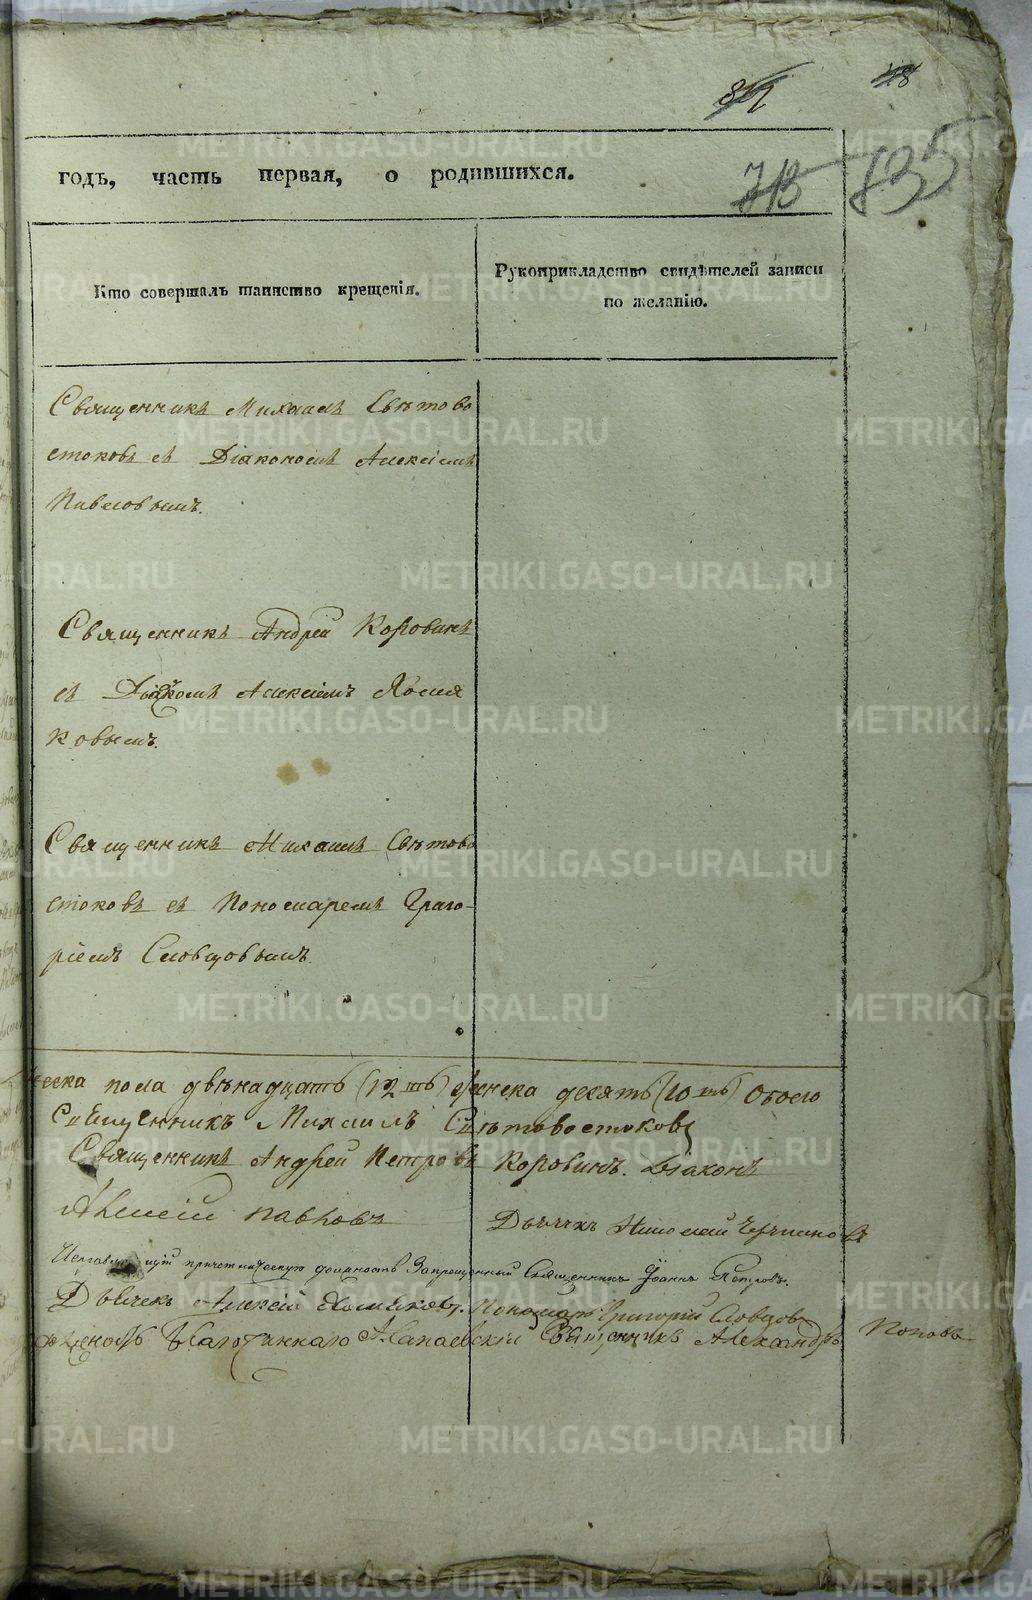 48
годъ, часть первая, о родившихся.
713 835
Кто совершалъ таинство крещенія.
Рукоприкладство свидѣтелей записи
по желанію.
Священникъ Михаилъ Свѣтово
стоковъ съ Діакономъ Алексіемъ
Павловымъ.
Священникъ Андрей Коровинъ
съ Алексіемъ Хомя
ковымъ.
Священникъ Михаилъ Свѣтово
стоковъ съ Пономаремъ Григо-
ріемъ Словцовымъ.
пола двѣнадцать (12ть) женска десять (10ть) Обоего
Священникъ Михаилъ Свѣтовостоковъ
Священникъ Андрей Петровъ Коровинъ. Діаконъ
Алексій Павловъ Дьячекъ Николай
причетническую должность Запрещенный Священникъ Іоаннъ Петровъ.
Дьячекъ Алексій Хомяковъ. Пономарь Григорій Словцовъ
Благочиннаго Алапаевскій Священникъ Александръ Поповъ
METRIKI.GASO-URAL.RU